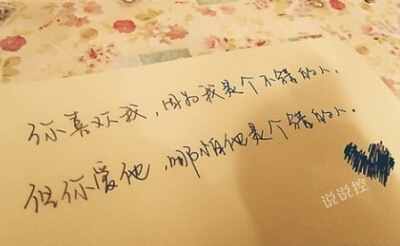 你喜欢我，因为我是个不错的人，
但你爱他，哪怕他是个错的人.
说说控